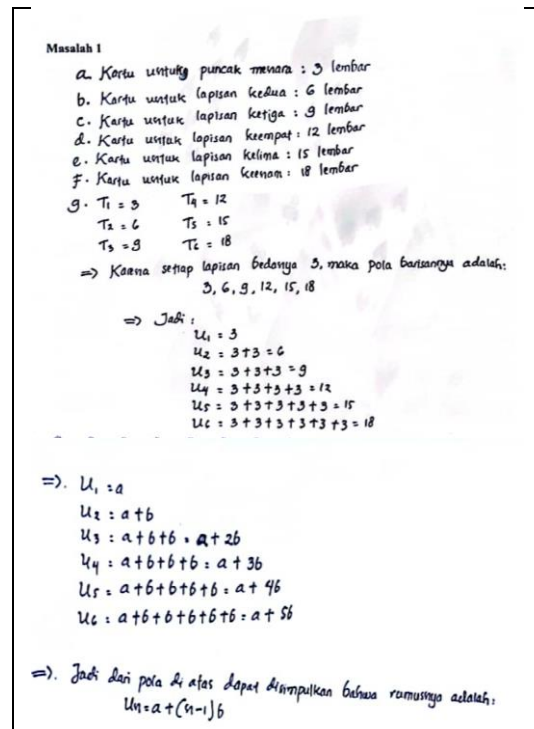 Masalah 1
a. Kartu untuk puncak menara : 3 lembar
b. Kartu untuk lapisan kedua : 6 lembar
c. Kartu untuk lapisan ketiga : 9 lembar
d. Kartu untuk lapisan keempat : 12 lembar
e. Kartu untuk lapisan kelima : 15 lembar
f. Kartu untuk lapisan keenam : 18 lembar
g. T₁ = 3 T₄ = 12
T₂ = 6 T₅ = 15
T₃ = 9 T₆ = 18
=> Karena setiap lapisan bedanya 3, maka pola barisannya adalah:
3, 6, 9, 12, 15, 18
=> Jadi :
U₁ = 3
U₂ = 3+3 = 6
U₃ = 3+3+3 = 9
U₄ = 3+3+3+3 = 12
U₅ = 3+3+3+3+3 = 15
U₆ = 3+3+3+3+3+3 = 18
=>. U₁ = a
U₂ = a+b
U₃ = a+b+b = a+2b
U₄ = a+b+b+b = a+3b
U₅ = a+b+b+b+b = a+4b
U₆ = a+b+b+b+b+b = a+5b
=>. Jadi dari pola di atas dapat disimpulkan bahwa rumusnya adalah:
Un = a+(n-1)b